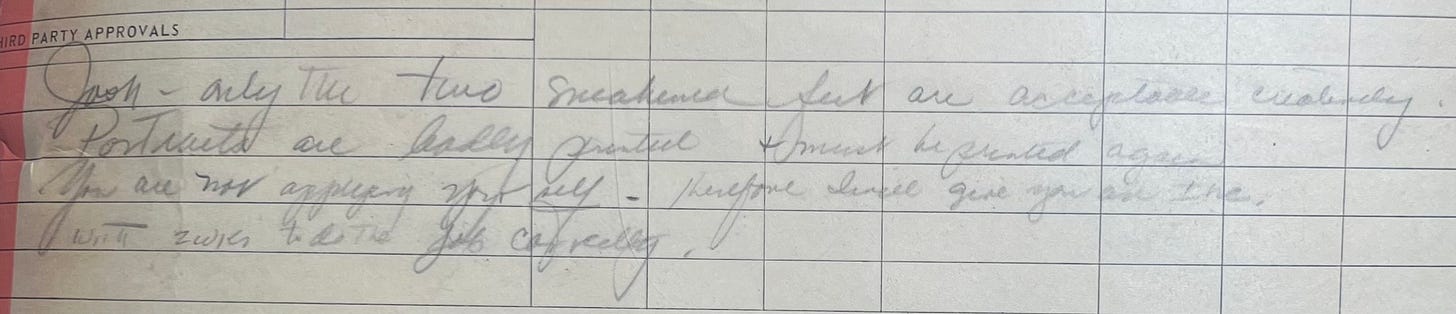 HIRD PARTY APPROVALS
Josh - only The two sneakered feet are acceptable
Portraits are badly printed + must be printed again
You are not applying yourself - Therefore I will give you an Inc.
with 2 wks to do the job correctly.